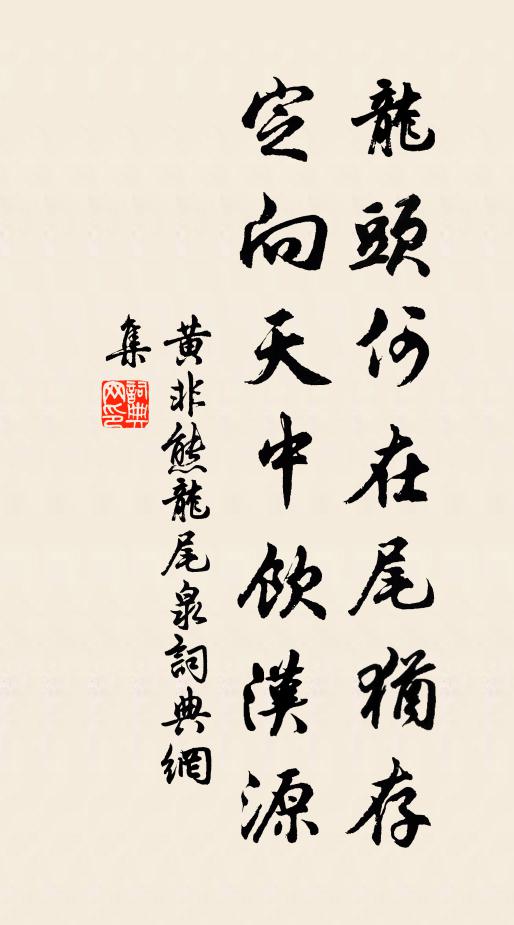 龍頭何在尾猶存
定向天中飲漢源
黃非熊龍尾泉詞典網
集
詞典
网印